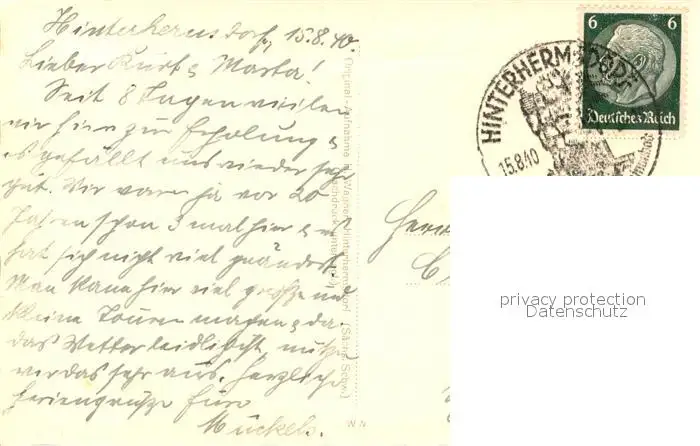 Hinterhermsdorf, 15.8.40.
Lieber Kurt & Marta!
Seit 8 Tagen weilen
wir hier zur Erholung &
es gefällt uns wieder sehr
gut. Wir waren ja vor 20
Jahren schon 3 mal hier & es
hat sich nicht viel geändert.
Man kann hier viel große und
kleine Touren machen & da
das Wetter leidlich ist, nutzen
wir das sehr aus. Herzliche
Feriengrüße Eure
Mückels.
Original-Aufnahme
Hinterhermsdorf (Sächs. Schweiz)
W N
Herrn
6 6
Deutsches Reich
HINTERHERMSDORF
15.8.40
privacy protection
Datenschutz